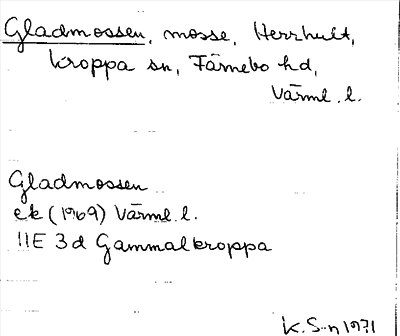 Gladmossen, mosse, Herrhult,
Kroppa sn, Färnebo hd,
Värml. l.
Gladmossen
ek (1969) Värml. l.
11E 3d Gammalkroppa
K. S-n 1971